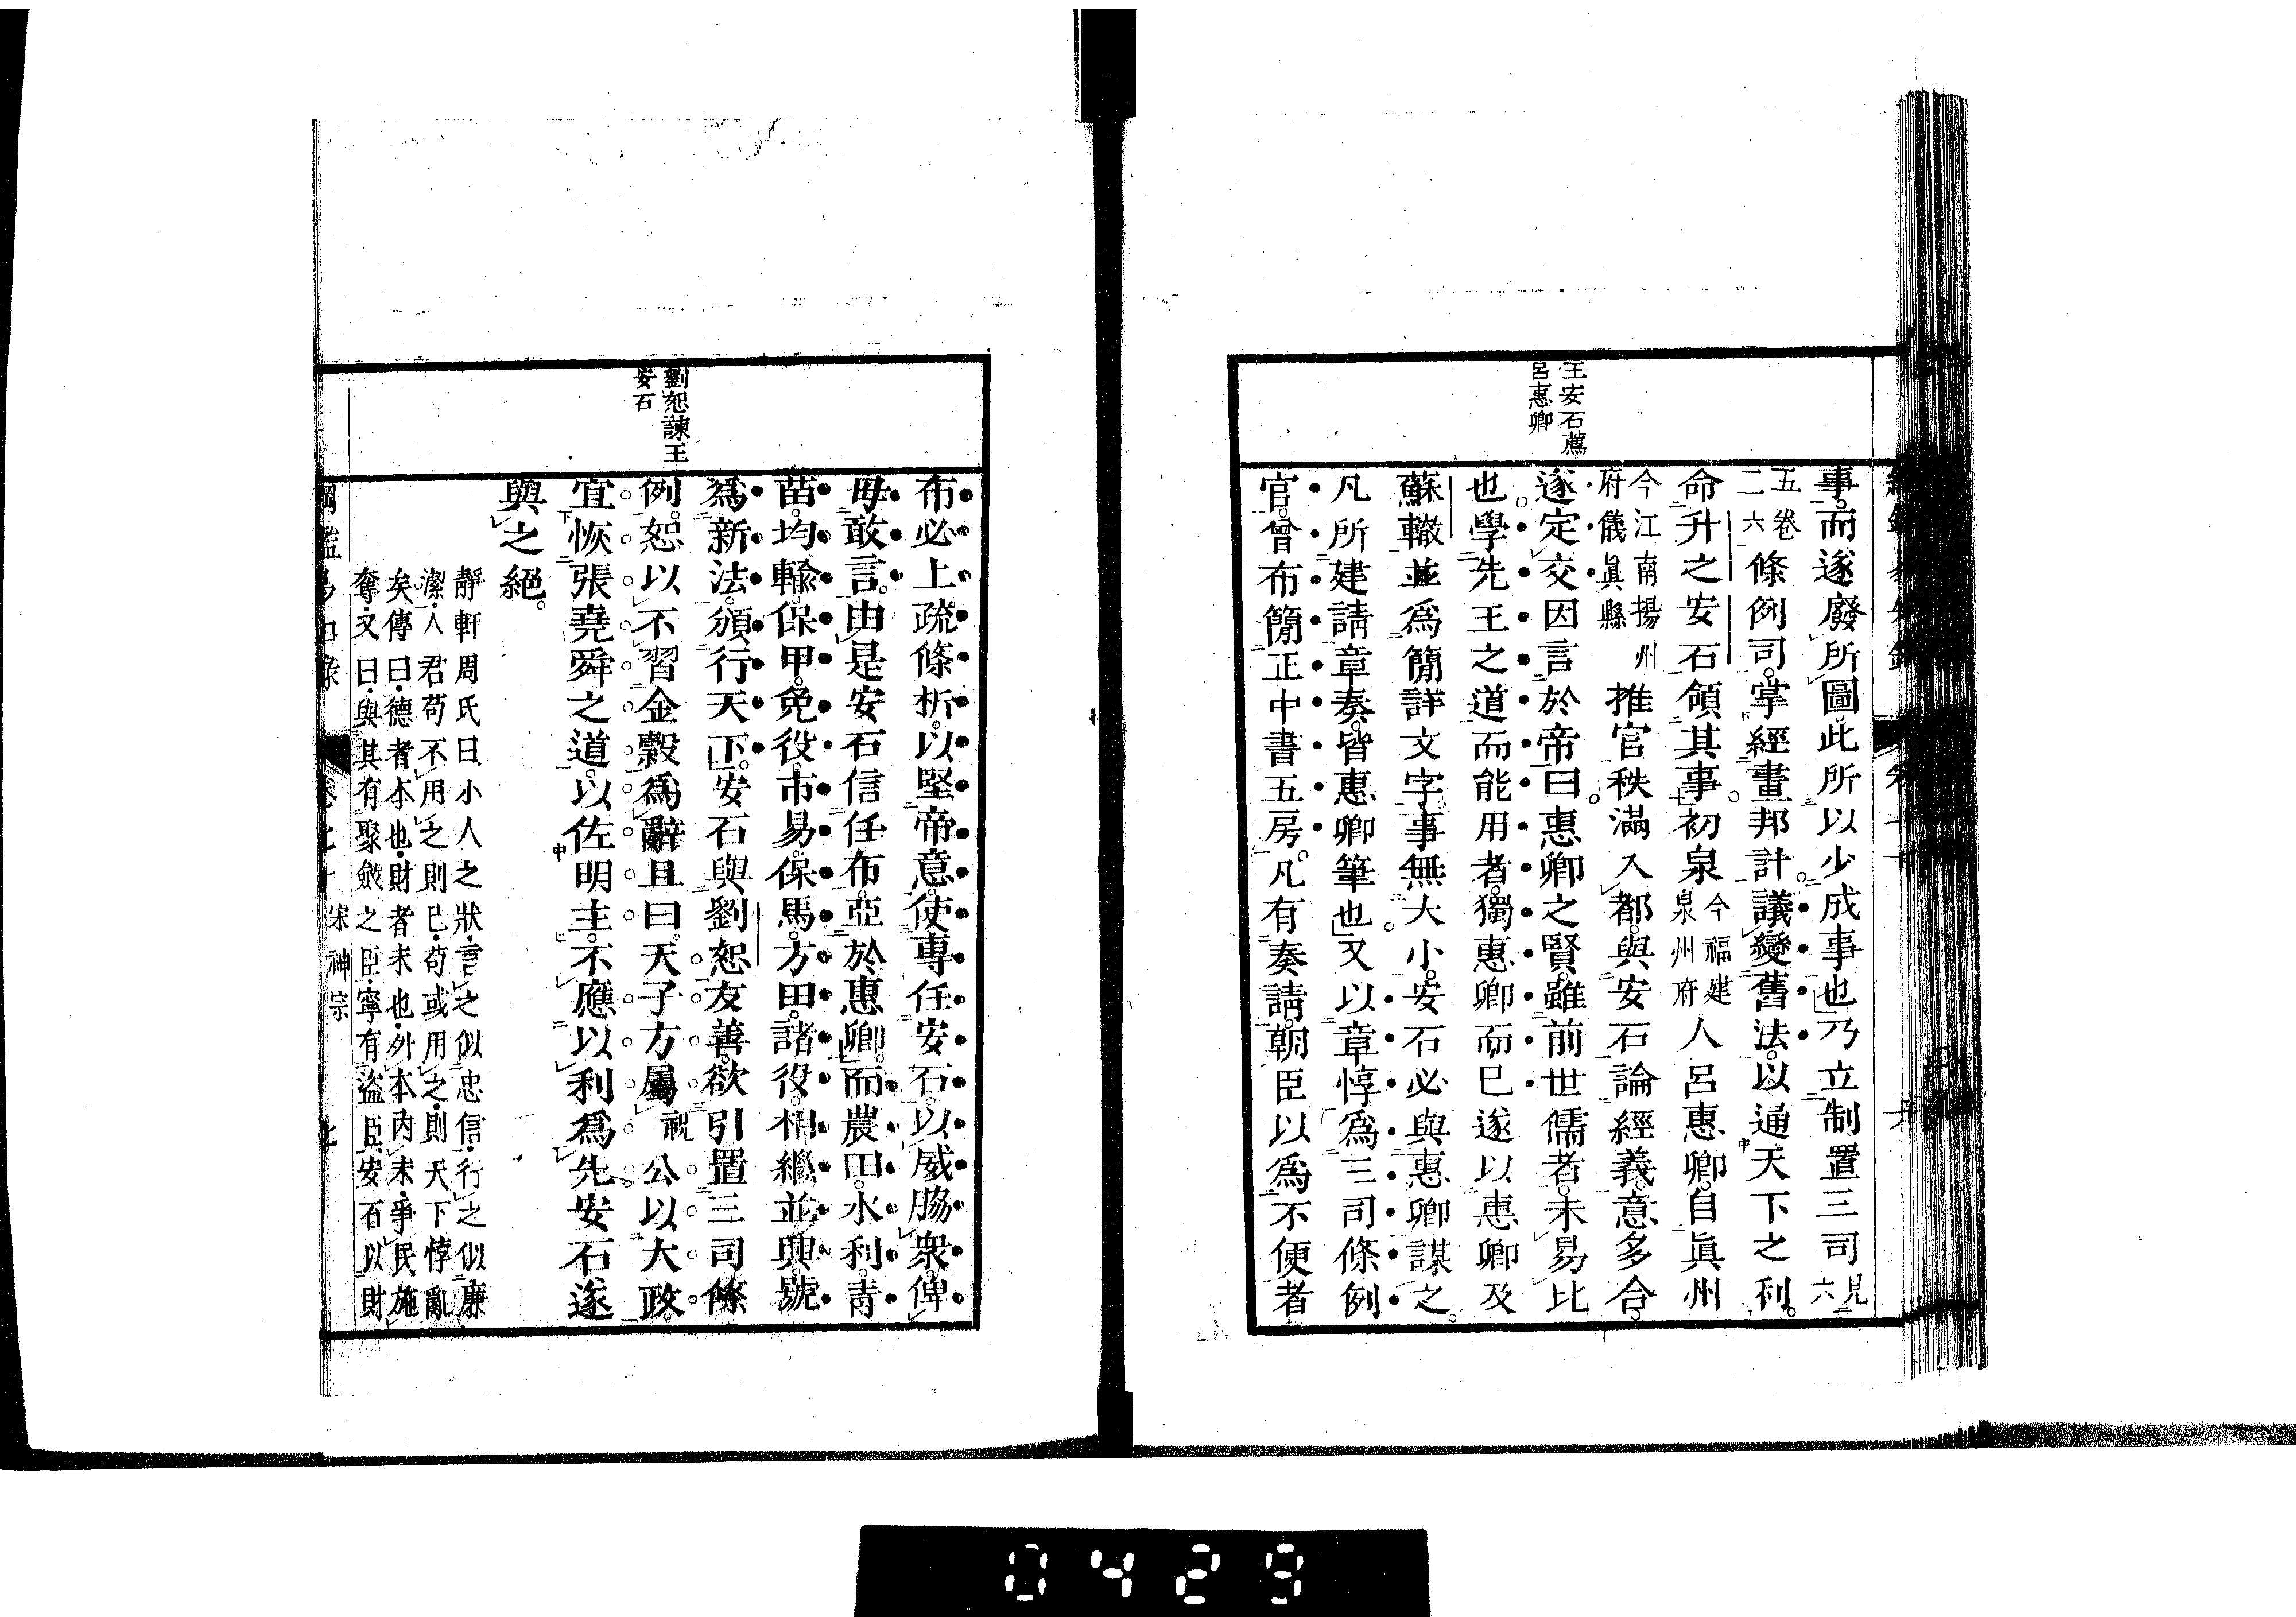 王安石薦
呂惠卿
事。而遂廢所圖。此所以少成事也。乃立制置三司見六
五卷二六條例司。掌經畫邦計。議變舊法。以通天下之利。
命升之安石領其事。初泉今福建泉州府人呂惠卿。自眞州
今江南揚州府儀眞縣推官秩滿入都。與安石論經義。意多合。
遂定交。因言於帝曰。惠卿之賢。雖前世儒者。未易比
也。學先王之道而能用者。獨惠卿而已。遂以惠卿及
蘇轍並爲簡詳文字。事無大小。安石必與惠卿謀之。
凡所建請章奏。皆惠卿筆也。又以章惇爲三司條例
官。曾布簡正中書五房。凡有奏請。朝臣以爲不便者
劉恕諫王
安石
布必上疏條析。以堅帝意。使專任安石。以威脇衆。俾
毋敢言。由是安石信任布。亞於惠卿。而農田。水利。青
苗。均輸。保甲。免役。市易。保馬。方田。諸役。相繼並興。號
爲新法。頒行天下。安石與劉恕友善。欲引置三司條
例。恕以不習金穀爲辭。且曰。天子方屬祝公以大政。
宜恢張堯舜之道。以佐明主。不應以利爲先。安石遂
與之絕。
靜軒周氏曰。小人之狀。言之似忠信。行之似廉
潔。人君苟不用之則已。苟或用之。則天下悖亂
矣。傳曰。德者本也。財者末也。外本內末。爭民施
奪。又曰。與其有聚斂之臣。寧有盜臣。安石以財
卷七十 宋神宗
0429